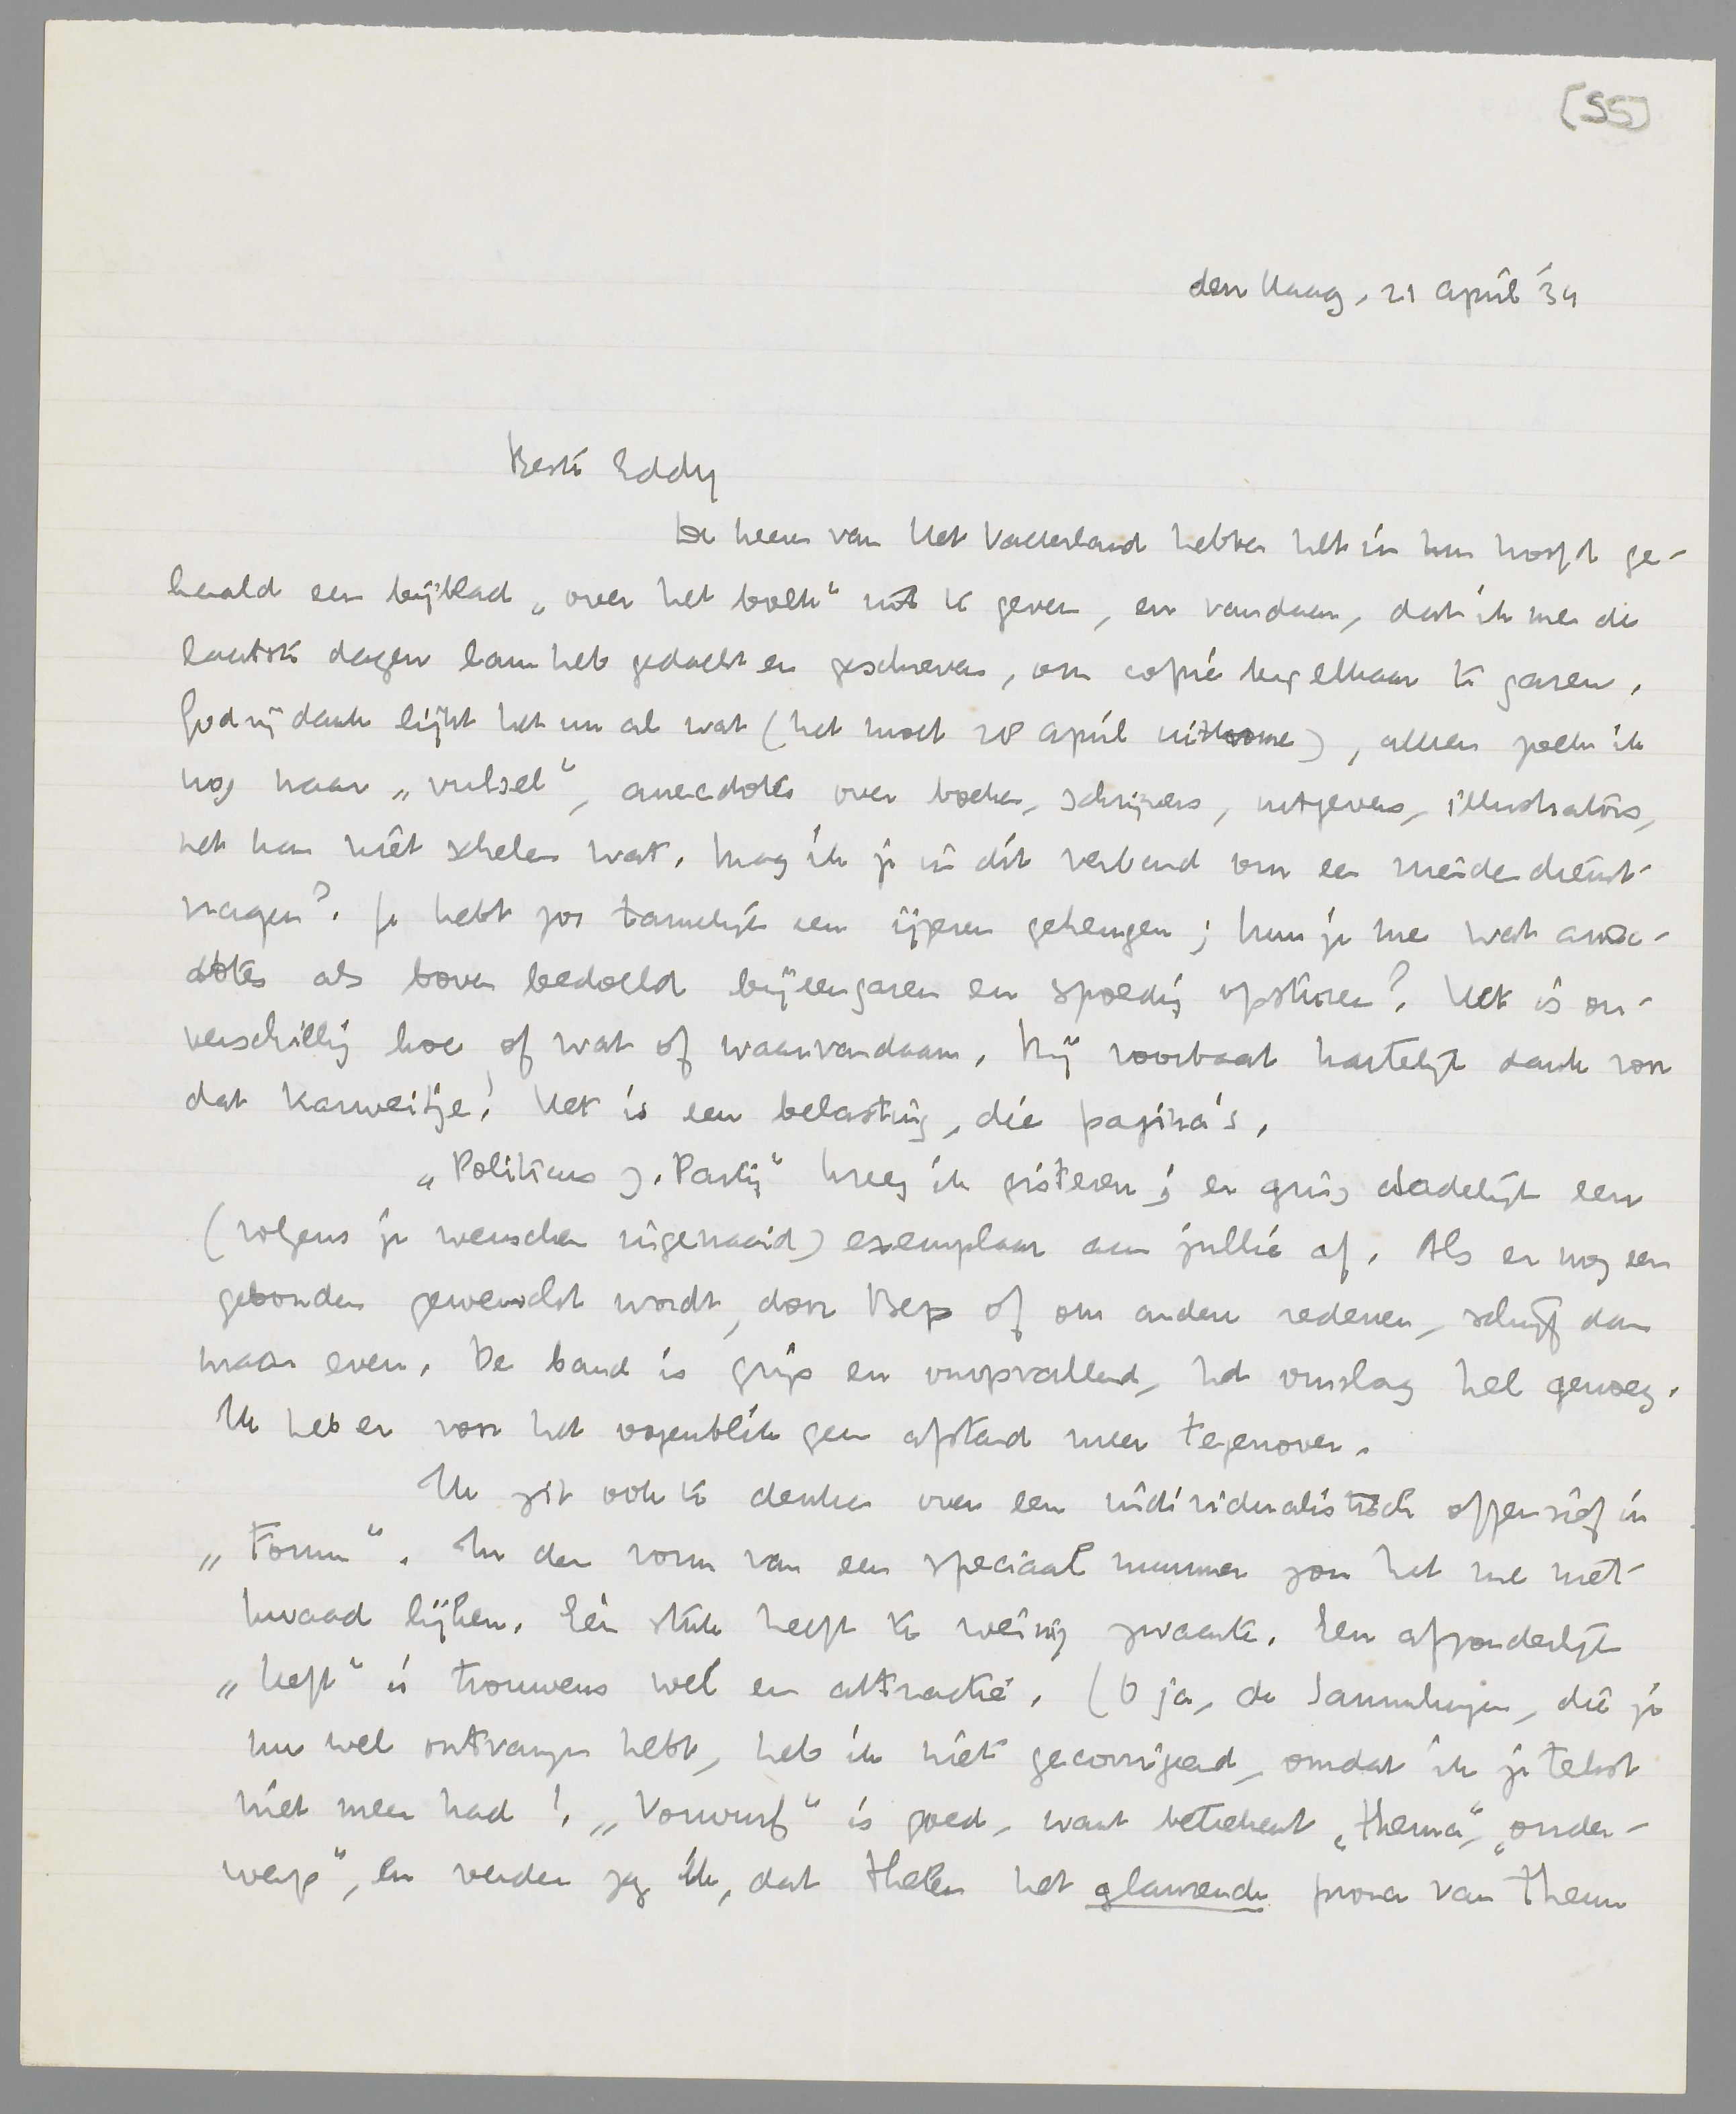 [55]
den Haag, 21 April '34
Beste Eddy
De heeren van Het Vaderland hebben het in hun hoofd ge-
haald een bijblad „over het boek" uit te geven, en vandaar, dat ik me de
laatste dagen lam heb gedacht en geschreven, om copie bij elkaar te garen.
Godzijdank lijkt het nu al wat (het moet 28 April uitkomen), alleen zoek ik
nog naar „vulsel", anecdotes over boeken, schrijvers, uitgevers, illustrators,
het kan niet schelen wat. Mag ik je in dit verband om een vriendendienst
vragen? Je hebt zoo tamelijk een ijzeren geheugen; kun je me wat anec-
dotes als boven bedoeld bijeengaren en spoedig opsturen? Het is on-
verschillig hoe of wat of waarvandaan. Bij voorbaat hartelijk dank voor
dat karweitje! Het is een belasting, die pagina's.
„Politicus z. Partij" kreeg ik gisteren; er ging dadelijk een
(volgens je wenschen ingenaaid) exemplaar aan jullie af. Als er nog een
gebonden gewenscht wordt, door Bep of om andere redenen, schrijf dan
maar even. De band is grijs en onopvallend, het omslag hel genoeg.
Ik heb er voor het oogenblik geen afstand meer tegenover.
Ik zit ook te denken over een individualistisch offensief in
„Forum". In den vorm van een speciaal nummer zou het me niet
kwaad lijken. Eén stuk heeft te weinig zwaarte. Een afzonderlijk
„heft" is trouwens wel een attractie. (O ja, de Sammlungen, die je
nu wel ontvangen hebt, heb ik niet gecorrigeerd, omdat ik je tekst
niet meer had! „Vorwurf" is goed, want beteekent „thema", „onder-
werp", en verder zag ik, dat Thelen het glanzende proza van Theun